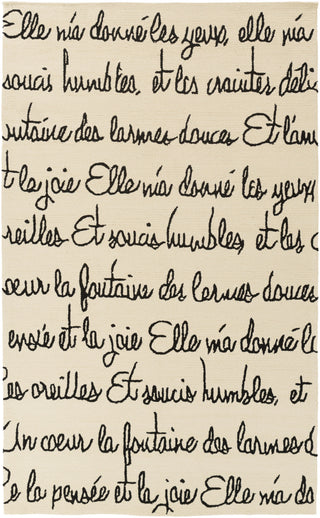 Elle m'a donné les yeux, elle m'a
soucis humbles, et les craintes déli
ntaine des larmes douces Et l'am
t la joie Elle m'a donné les yeux
reilles Et soucis humbles, et les c
oeur la fontaine des larmes douces
ensée et la joie Elle m'a donné le
les oreilles Et soucis humbles, et
Un coeur la fontaine des larmes d
Ce la pensée et la joie Elle m'a do